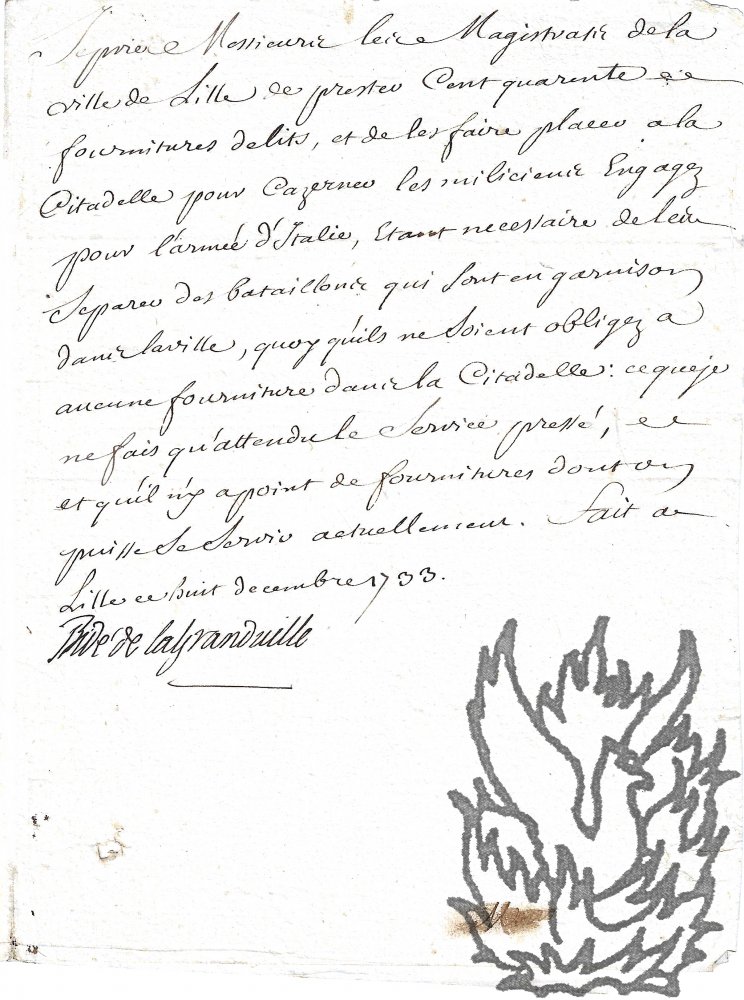 Je prie Messieurs les Magistrats de la
ville de Lille de prester Cent quarente
fournitures de lits, et de les faire placer a la
Citadelle pour Cazerner les miliciens Engagez
pour l'armée d'Italie, Etant necessaire de les
Separer des bataillons qui sont en garnison
dans la ville, quoy qu'ils ne soient obligez a
aucune fourniture dans la Citadelle: ce que je
ne fais qu'attendu le Service pressé,
et qu'il n'y a point de fournitures dont on
puisse se servir actuellement. Fait a
Lille ce huit decembre 1733.
Bidé de la Granduille